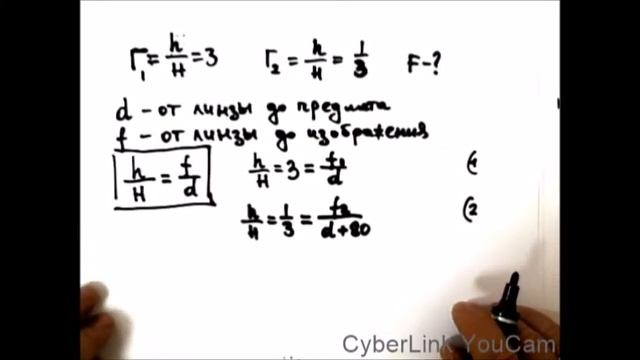 Г₁ = h/H = 3 Г₂ = h/H = 1/3 F-?
d - от линзы до предмета
f - от линзы до изображения
h/H = f/d h/H = 3 = f₁/d (1
h/H = 1/3 = f₂/d+80 (2
CyberLink YouCam